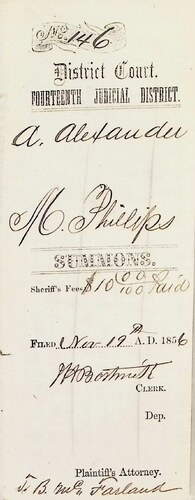 No. 146
District Court.
FOURTEENTH JUDICIAL DISTRICT.
A. Alexander
M. Phillips
SUMMONS.
Sheriff's Fees $10 00/100 Paid
FILED Nov 19th A. D. 1856
CLERK.
Dep.
Plaintiff's Attorney.
To B. Mc Farland